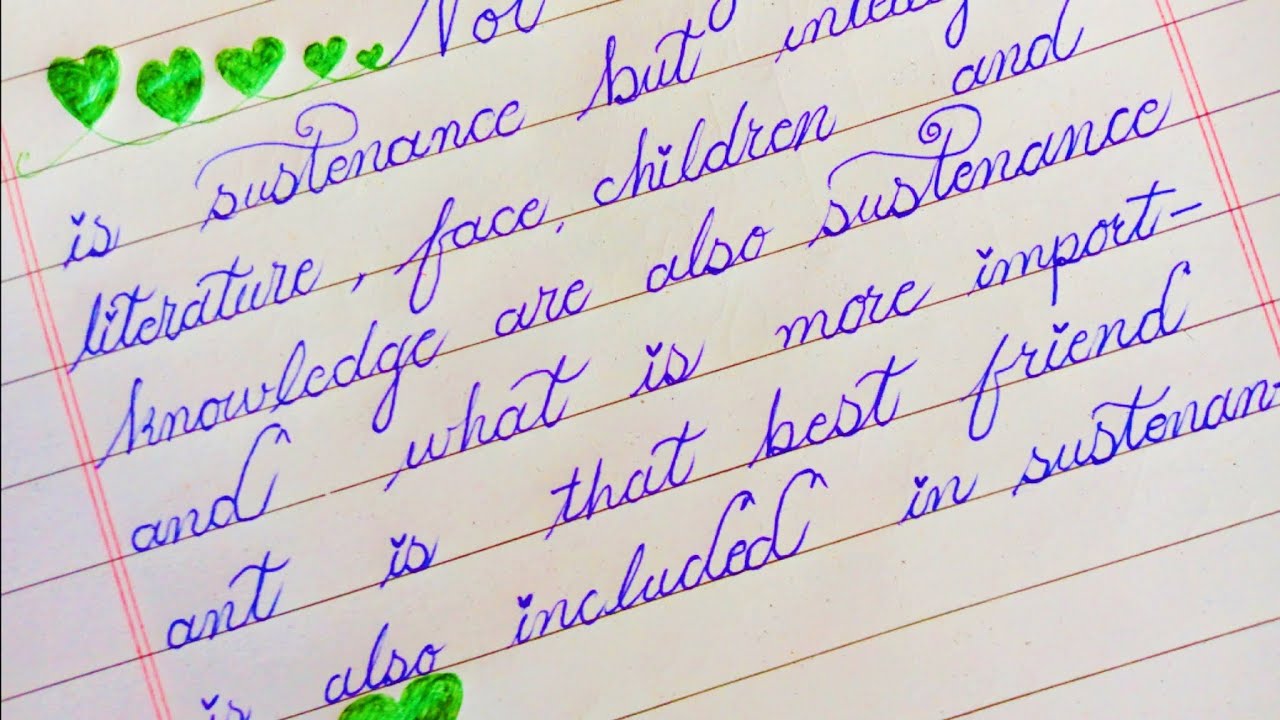 Not
is sustenance but
literature, face, children and
knowledge are also sustenance
and what is more import-
ant is that best friend
is also included in sustenan-